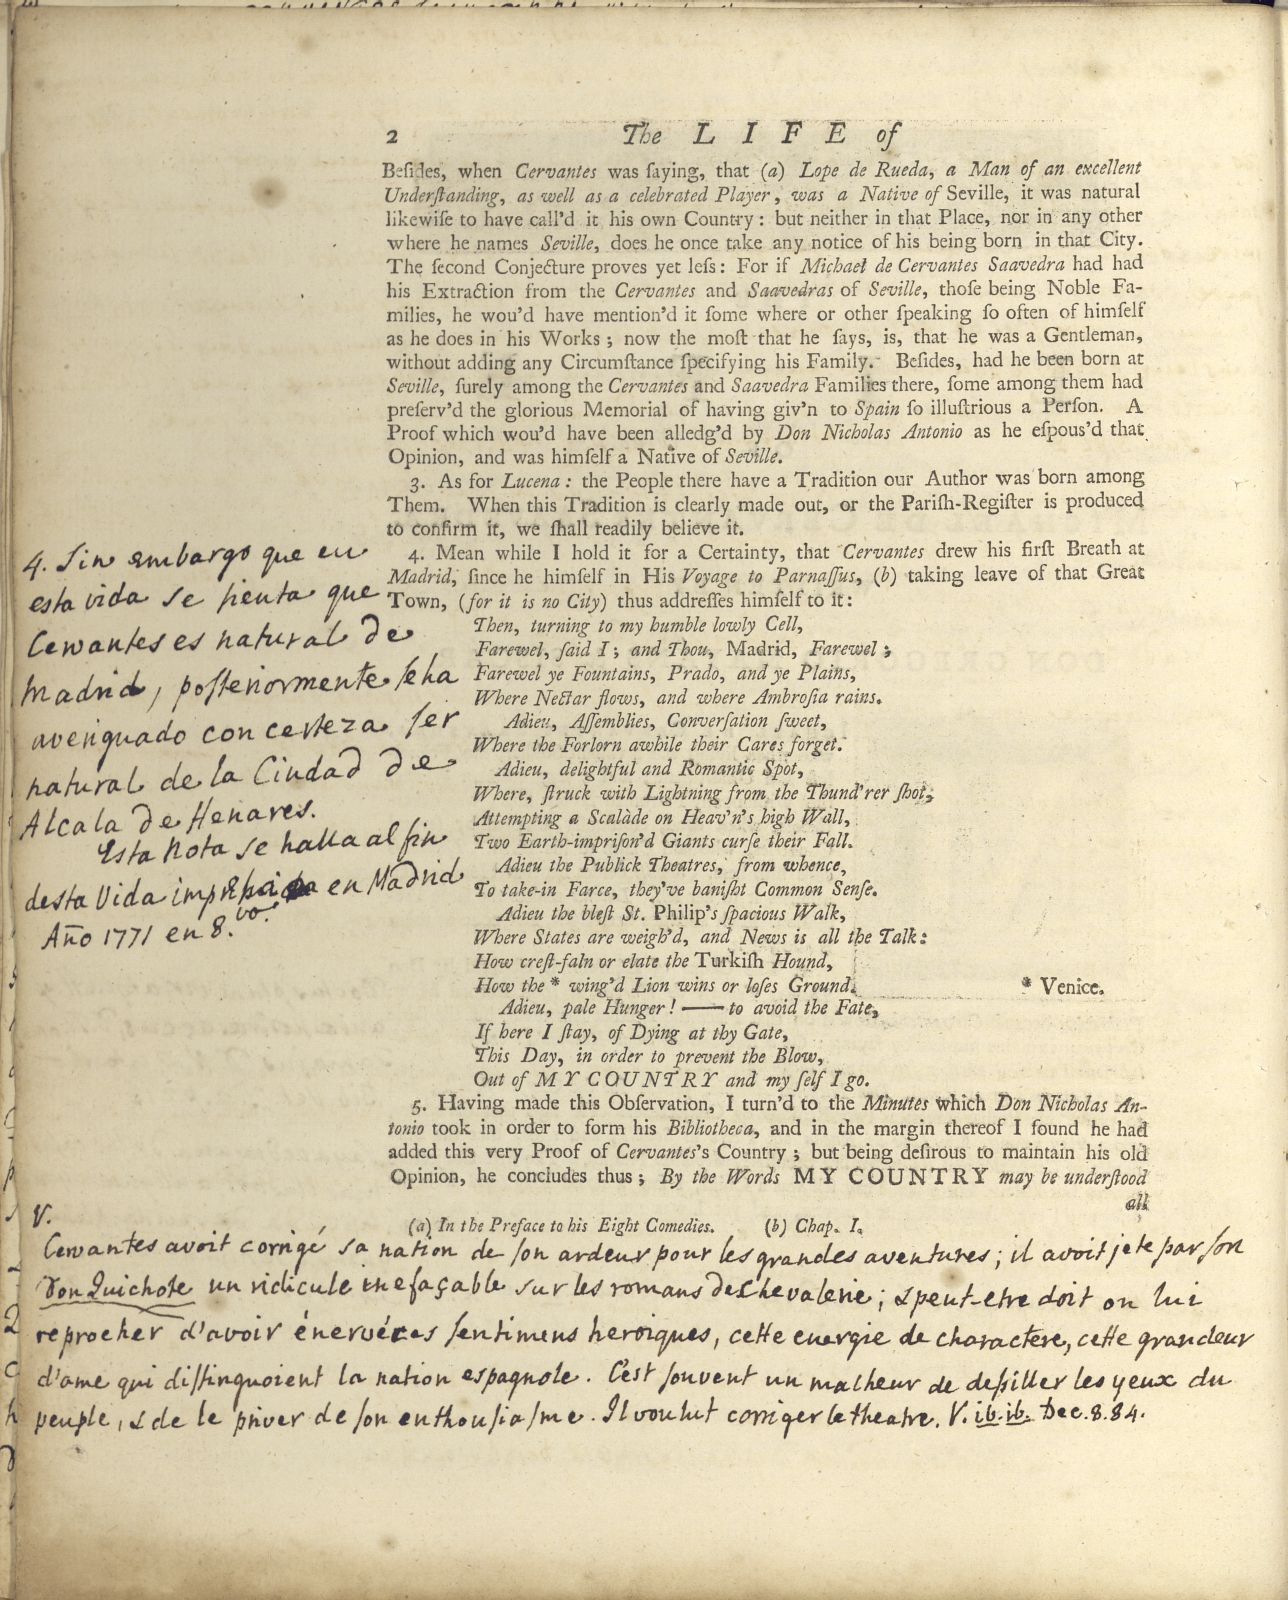 2 The LIFE of
Beſides, when Cervantes was ſaying, that (a) Lope de Rueda, a Man of an excellent
Underſtanding, as well as a celebrated Player, was a Native of Seville, it was natural
likewiſe to have call'd it his own Country: but neither in that Place, nor in any other
where he names Seville, does he once take any notice of his being born in that City.
The ſecond Conjecture proves yet leſs: For if Michael de Cervantes Saavedra had had
his Extraction from the Cervantes and Saavedras of Seville, thoſe being Noble Fa-
milies, he wou'd have mention'd it ſome where or other ſpeaking ſo often of himſelf
as he does in his Works; now the moſt that he ſays, is, that he was a Gentleman,
without adding any Circumſtance ſpecifying his Family. Beſides, had he been born at
Seville, ſurely among the Cervantes and Saavedra Families there, ſome among them had
preſerv'd the glorious Memorial of having giv'n to Spain ſo illuſtrious a Perſon. A
Proof which wou'd have been alledg'd by Don Nicholas Antonio as he eſpous'd that
Opinion, and was himſelf a Native of Seville.
3. As for Lucena: the People there have a Tradition our Author was born among
Them. When this Tradition is clearly made out, or the Pariſh-Regiſter is produced
to confirm it, we ſhall readily believe it.
4. Mean while I hold it for a Certainty, that Cervantes drew his firſt Breath at
Madrid, ſince he himſelf in His Voyage to Parnaſſus, (b) taking leave of that Great
Town, (for it is no City) thus addreſſes himſelf to it:
Then, turning to my humble lowly Cell,
Farewel, ſaid I; and Thou, Madrid, Farewel;
Farewel ye Fountains, Prado, and ye Plains,
Where Nectar flows, and where Ambroſia rains.
Adieu, Aſſemblies, Converſation ſweet,
Where the Forlorn awhile their Cares forget.
Adieu, delightful and Romantic Spot,
Where, ſtruck with Lightning from the Thund'rer ſhot,
Attempting a Scalàde on Heav'n's high Wall,
Two Earth-impriſon'd Giants curſe their Fall.
Adieu the Publick Theatres, from whence,
To take-in Farce, they've baniſht Common Senſe.
Adieu the bleſt St. Philip's ſpacious Walk,
Where States are weigh'd, and News is all the Talk:
How creſt-faln or elate the Turkiſh Hound,
How the * wing'd Lion wins or loſes Ground.
* Venice.
Adieu, pale Hunger! — to avoid the Fate,
If here I ſtay, of Dying at thy Gate,
This Day, in order to prevent the Blow,
Out of MY COUNTRY and my ſelf I go.
5. Having made this Obſervation, I turn'd to the Minutes which Don Nicholas An-
tonio took in order to form his Bibliotheca, and in the margin thereof I found he had
added this very Proof of Cervantes's Country; but being deſirous to maintain his old
Opinion, he concludes thus; By the Words MY COUNTRY may be underſtood
all
(a) In the Preface to his Eight Comedies. (b) Chap. I.
4. Sin embargo que en
esta vida se sienta que
Cervantes es natural de
Madrid, posteriormente se ha
averiguado con certeza ser
natural de la Ciudad de
Alcala de Henares.
Esta Nota se halla al fin
desta Vida en Madrid
Año 1771 en 8.vo.
V.
Cervantes avoit corrigé sa nation de son ardeur pour les grandes aventures; il avoit jeté par son
Don Quichote un ridicule inefaçable sur les romans de Chevalerie; & peut-etre doit on lui
reprocher d'avoir énervé ces sentimens heroiques, cette energie de charactere, cette grandeur
d'ame qui distinquoient la nation espagnole. C'est souvent un malheur de desiller les yeux du
peuple, & de le priver de son enthousiasme. Il voulut corriger le theatre. V. ib. ib. Dec. 8. 84.